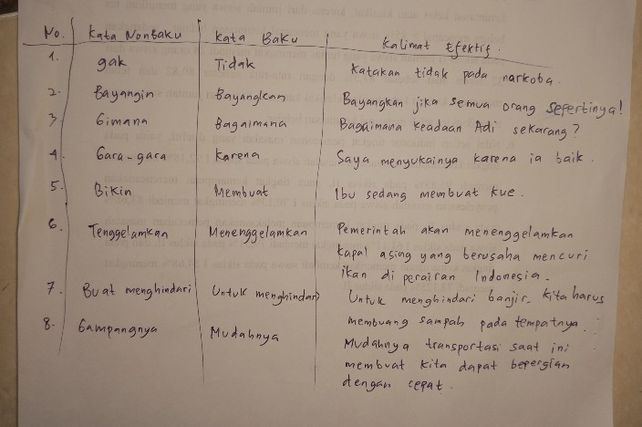 No. Kata Nonbaku Kata Baku Kalimat Efektif.
1. gak Tidak Katakan tidak pada narkoba.
2. Bayangin Bayangkan Bayangkan jika semua orang sepertinya!
3 Gimana Bagaimana Bagaimana keadaan Adi sekarang?
4. Gara-gara Karena Saya menyukainya karena ia baik.
5. Bikin Membuat Ibu sedang membuat kue.
6. Tenggelamkan Menenggelamkan Pemerintah akan menenggelamkan
kapal asing yang berusaha mencuri
ikan di perairan Indonesia.
7. Buat menghindari Untuk menghindari Untuk menghindari banjir, kita harus
membuang sampah pada tempatnya.
8. Gampangnya Mudahnya Mudahnya transportasi saat ini
membuat kita dapat bepergian
dengan cepat.